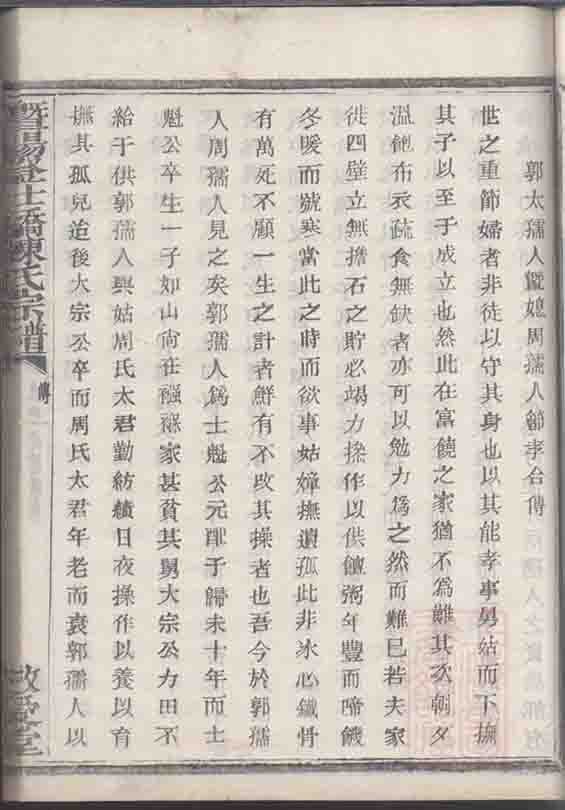 郭太孺人曁媳周孺人節孝合傳
世之重節婦者非徒以守其身也以其能孝事舅姑而下撫
其子以至于成立也然此在富饒之家猶不爲難其次朝夕
溫飽布衣疏食無缺者亦可以勉力爲之然而難已若夫家
徒四壁立無擔石之貯必竭力操作以供饘粥年豐而啼饑
冬暖而號寒當此之時而欲事姑嫜撫遺孤此非冰心鐵骨
有萬死不顧一生之計者鮮有不改其操者也吾今於郭孺
人周孺人見之矣郭孺人爲士魁公元配于歸未十年而士
魁公卒生一子如山尙在襁褓家甚貧其舅大宗公力田不
給于供郭孺人與姑周氏太君勤紡績日夜操作以養以育
撫其孤兒迨後大宗公卒而周氏太君年老而衰郭孺人以
暨陽盆士橋陳氏宗譜
傳
敬愛堂